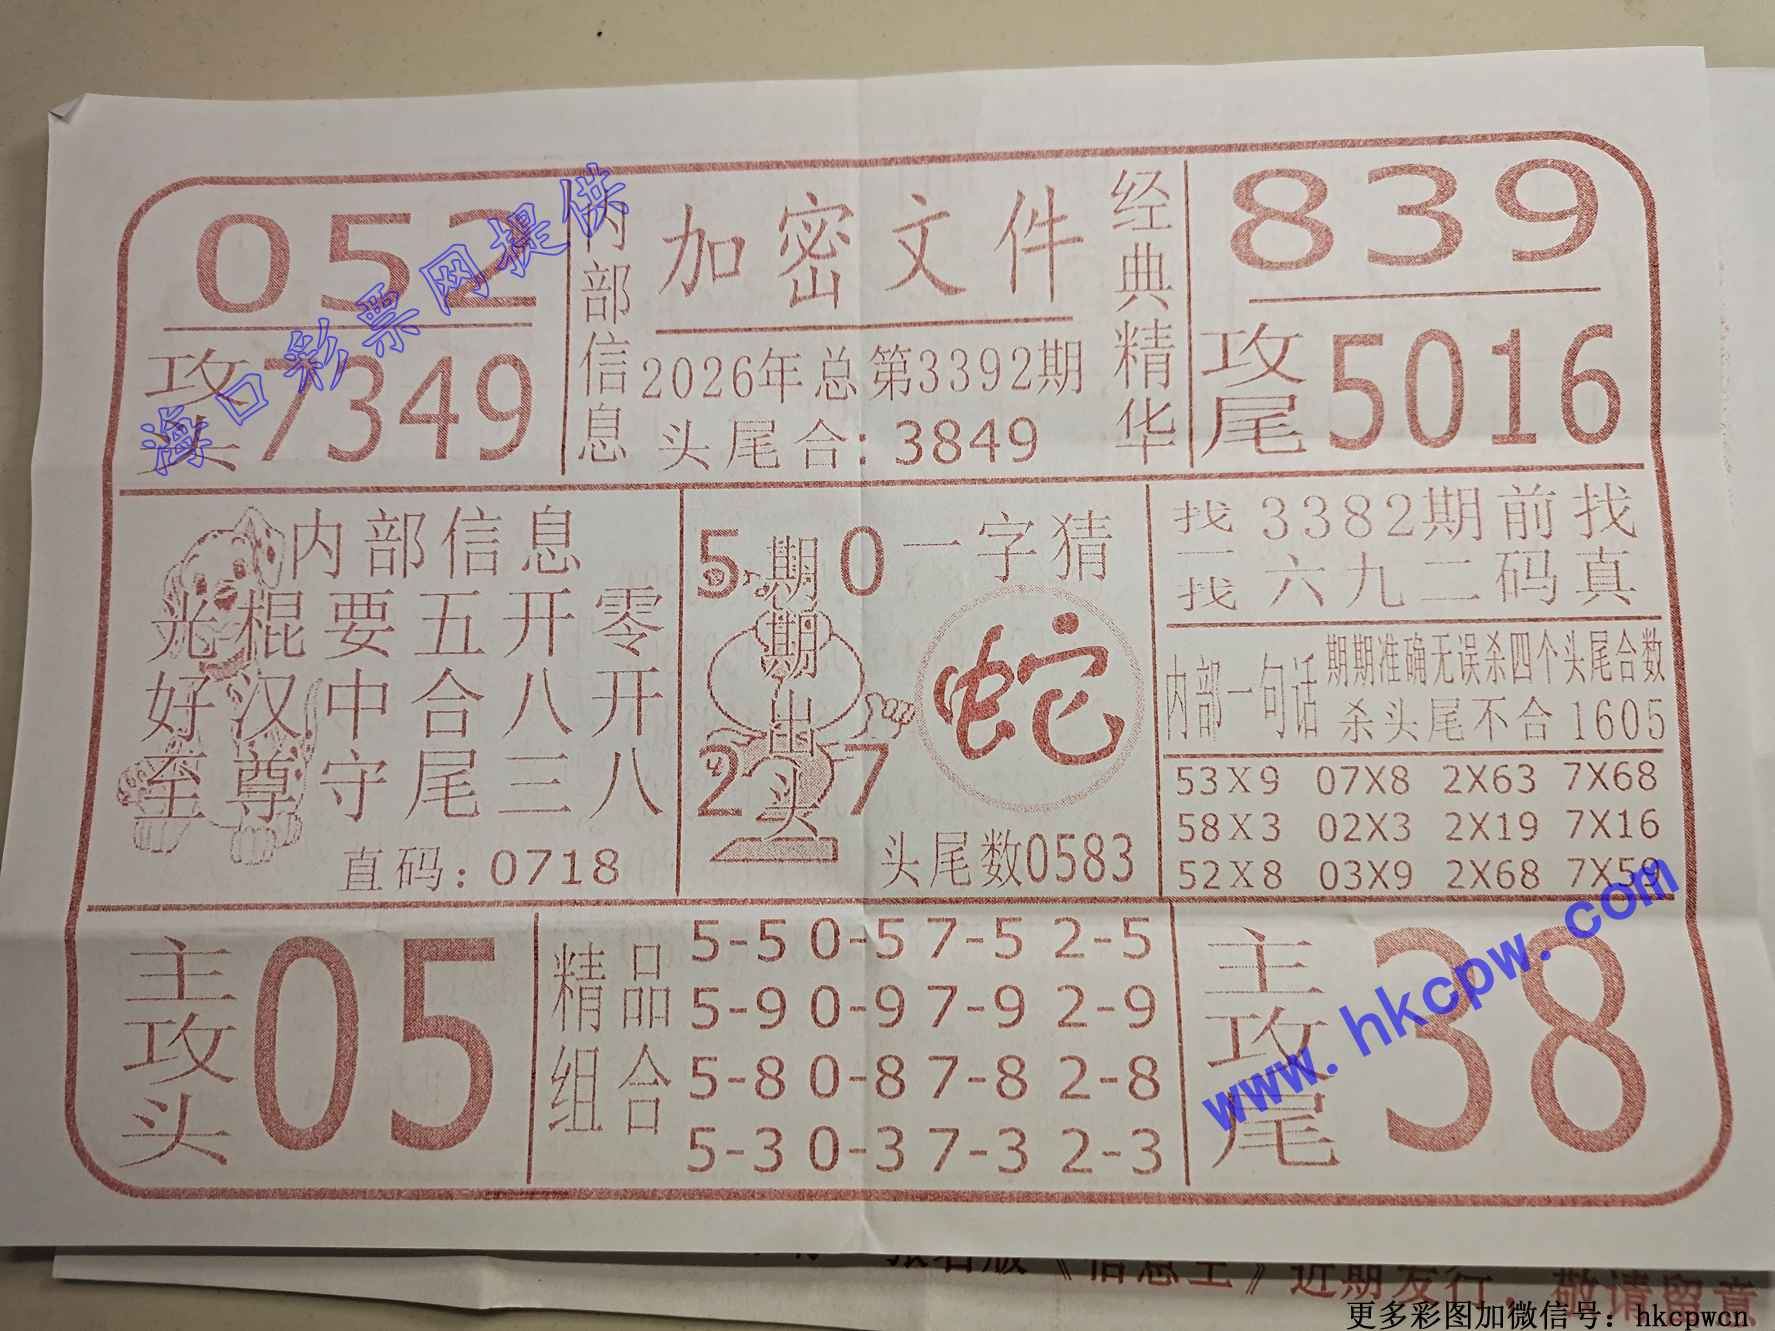 052
攻头 7349
内部信息
加密文件
2026年总第3392期
头尾合：3849
经典精华
839
攻尾 5016
海口彩票网提供
内部信息
光棍要五开零
好汉中合八开
至尊守尾三八
直码：0718
5 0
期期出头
2 7
一字猜
蛇
头尾数0583
找一找
3382期前找
六九二码真
内部一句话
期期准确无误杀四个头尾合数
杀头尾不合1605
53X9 07X8 2X63 7X68
58X3 02X3 2X19 7X16
52X8 03X9 2X68 7X59
主攻头 05
精品组合
5-5 0-5 7-5 2-5
5-9 0-9 7-9 2-9
5-8 0-8 7-8 2-8
5-3 0-3 7-3 2-3
主攻尾 38
www.hkcpw.com
《信息王》近期发行，敬请留意
更多彩图加微信号：hkcpwcn